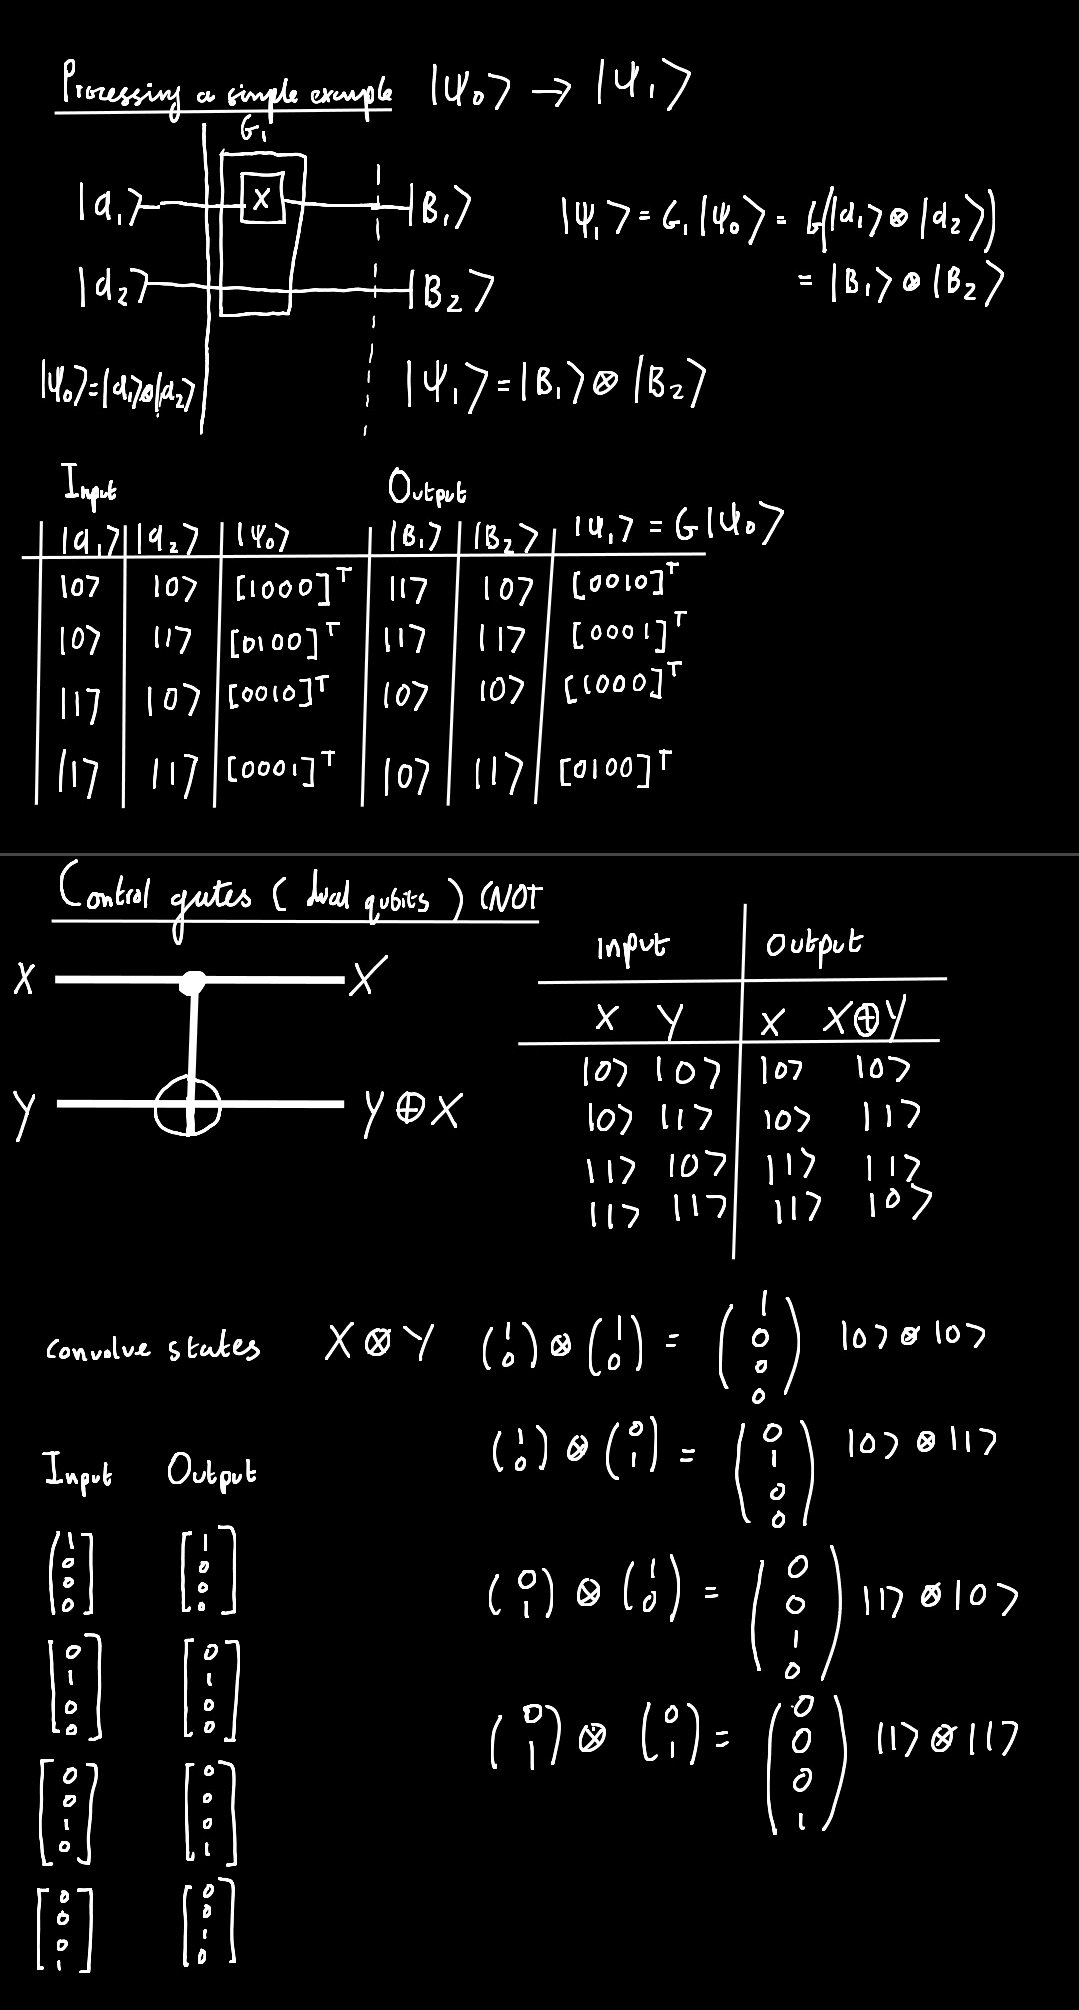 Processing a simple example |ψ₀⟩ → |ψ₁⟩
G₁
|α₁⟩ X |B₁⟩
|ψ₁⟩ = G₁|ψ₀⟩ = G(|α₁⟩ ⊗ |α₂⟩)
|α₂⟩ |B₂⟩
= |B₁⟩ ⊗ |B₂⟩
|ψ₀⟩=|α₁⟩⊗|α₂⟩
|ψ₁⟩ = |B₁⟩ ⊗ |B₂⟩
Input Output
|α₁⟩ |α₂⟩ |ψ₀⟩ |B₁⟩ |B₂⟩ |ψ₁⟩ = G|ψ₀⟩
|0⟩ |0⟩ [1000]ᵀ |1⟩ |0⟩ [0010]ᵀ
|0⟩ |1⟩ [0100]ᵀ |1⟩ |1⟩ [0001]ᵀ
|1⟩ |0⟩ [0010]ᵀ |0⟩ |0⟩ [1000]ᵀ
|1⟩ |1⟩ [0001]ᵀ |0⟩ |1⟩ [0100]ᵀ
Control gates (dual qubits) CNOT
X X
Y Y ⊕ X
Input Output
X Y X X⊕Y
|0⟩ |0⟩ |0⟩ |0⟩
|0⟩ |1⟩ |0⟩ |1⟩
|1⟩ |0⟩ |1⟩ |1⟩
|1⟩ |1⟩ |1⟩ |0⟩
convolve states X ⊗ Y
(1 0) ⊗ (1 0) = (1 0 0 0) |0⟩ ⊗ |0⟩
(1 0) ⊗ (0 1) = (0 1 0 0) |0⟩ ⊗ |1⟩
(0 1) ⊗ (1 0) = (0 0 1 0) |1⟩ ⊗ |0⟩
(0 1) ⊗ (0 1) = (0 0 0 1) |1⟩ ⊗ |1⟩
Input Output
[1 0 0 0] [1 0 0 0]
[0 1 0 0] [0 1 0 0]
[0 0 1 0] [0 0 0 1]
[0 0 0 1] [0 0 1 0]